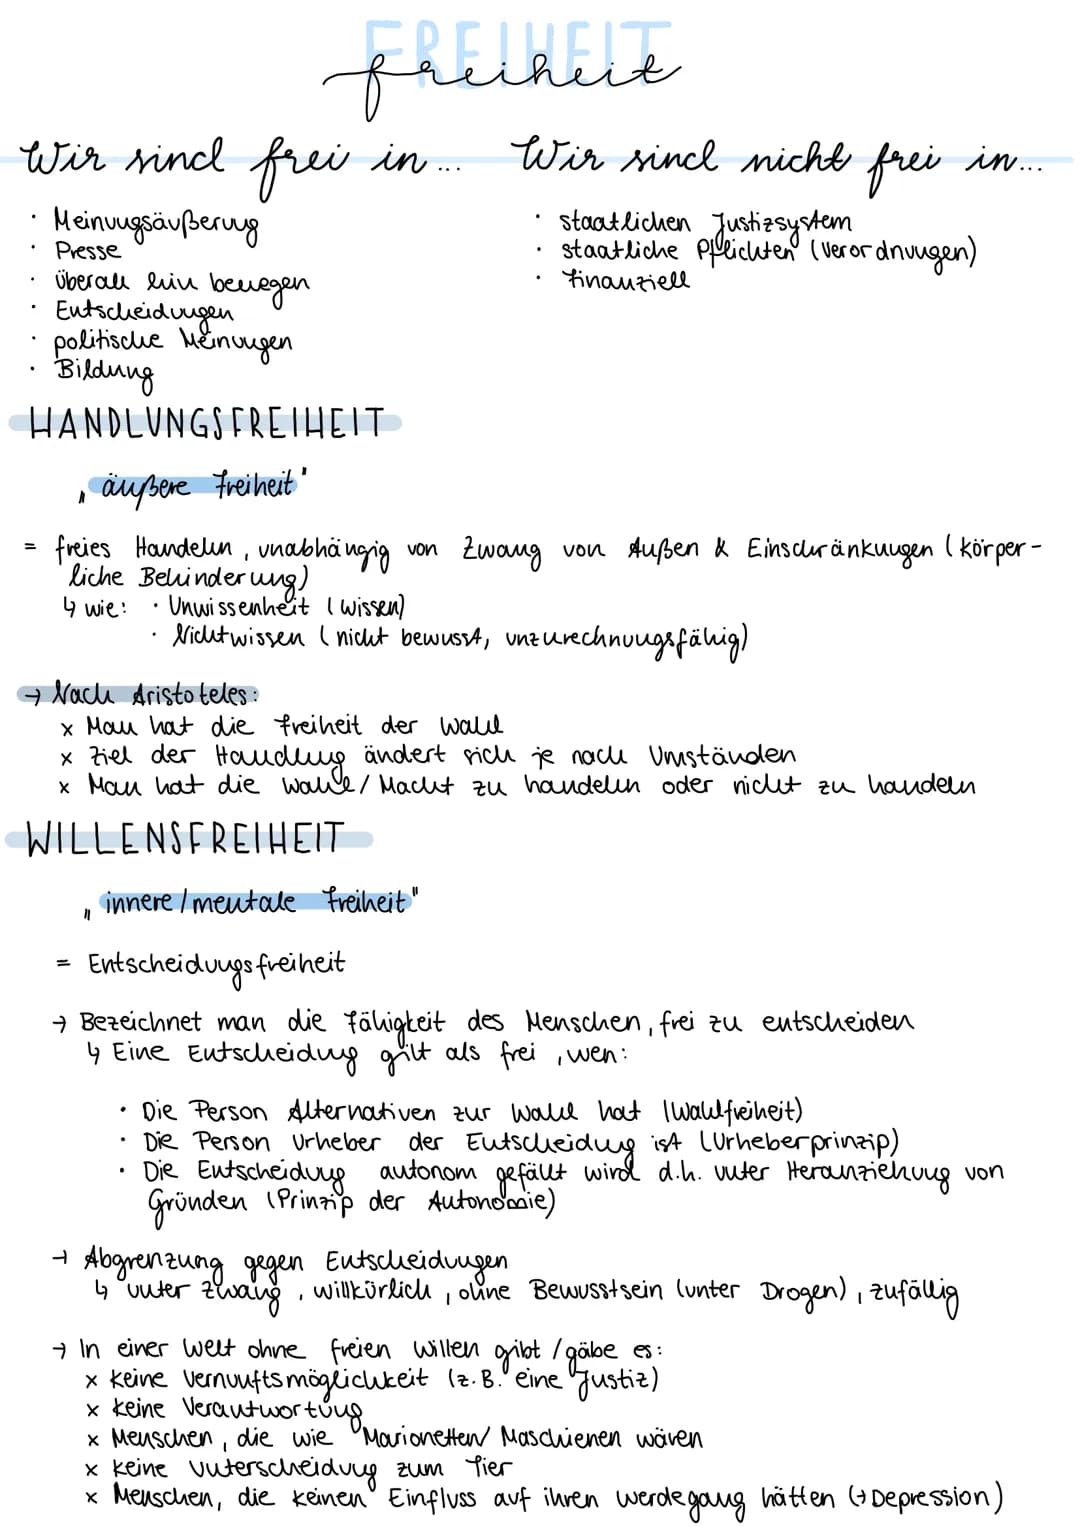 FREIHEIT
freiheit
Wir sind frei in... Wir sind nicht frei in...
· Meinungsäußerung
· Presse
· überall hin bewegen
· Entscheidungen
· politische Meinungen
· Bildung
· staatlichen Justizsystem
· staatliche Pflichten (Verordnungen)
· finanziell
HANDLUNGSFREIHEIT
„äußere Freiheit"
= freies Handeln, unabhängig von Zwang von Außen & Einschränkungen (körper-
liche Behinderung)
↳ wie: · Unwissenheit (wissen)
· Nichtwissen (nicht bewusst, unzurechnungsfähig)
→ Nach Aristoteles:
x Man hat die Freiheit der Wahl
x Ziel der Handlung ändert sich je nach Umständen
x Man hat die Wahl/Macht zu handeln oder nicht zu handeln
WILLENSFREIHEIT
„innere/mentale Freiheit"
= Entscheidungsfreiheit
→ Bezeichnet man die Fähigkeit des Menschen, frei zu entscheiden
↳ Eine Entscheidung gilt als frei, wen:
· Die Person Alternativen zur Wahl hat (Wahlfreiheit)
· Die Person Urheber der Entscheidung ist (Urheberprinzip)
· Die Entscheidung autonom gefällt wird d.h. unter Heranziehung von
Gründen (Prinzip der Autonomie)
→ Abgrenzung gegen Entscheidungen
↳ unter Zwang, willkürlich, ohne Bewusstsein (unter Drogen), zufällig
→ In einer Welt ohne freien Willen gibt/gäbe es:
x keine Vernunftsmöglichkeit (z.B. eine Justiz)
x keine Verantwortung
x Menschen, die wie Marionetten/Maschienen wären
x keine Unterscheidung zum Tier
x Menschen, die keinen Einfluss auf ihren Werdegang hätten (→Depression)